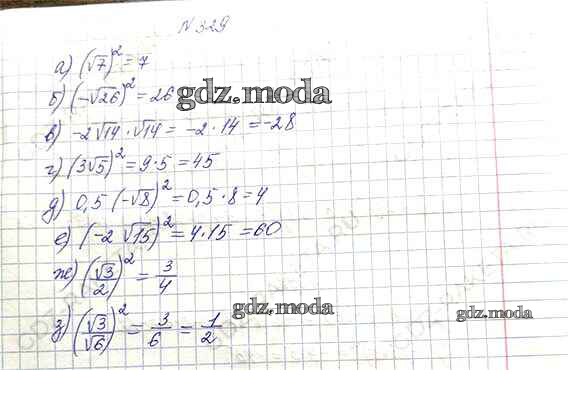 N 329
а) (√7)² = 7
б) (-√26)² = 26 gdz.moda
в) -2√14 · √14 = -2 · 14 = -28
г) (3√5)² = 9·5 = 45
д) 0,5 (-√8)² = 0,5 · 8 = 4
е) (-2 √15)² = 4·15 = 60
ж) (√3/2)² = 3/4
з) (√3/√6)² = 3/6 = 1/2
gdz.moda
gdz.moda